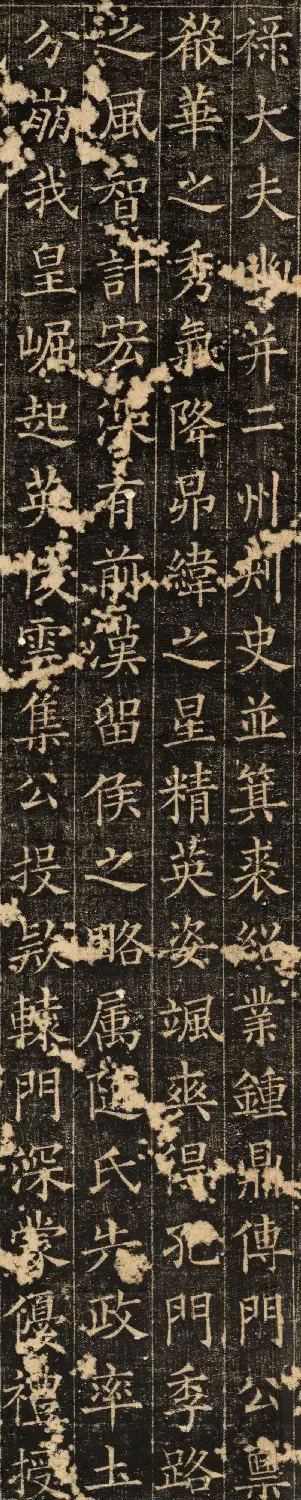 禄大夫幽并二州刾史並箕裘紹業鍾鼎傳門公禀
殽華之秀氣降昴緯之星精英姿颯爽得孔門季路
之風智計宏深有前漢留侯之略属隨氏失政率土
分崩我皇崛起英俊雲集公投款轅門深蒙優禮授